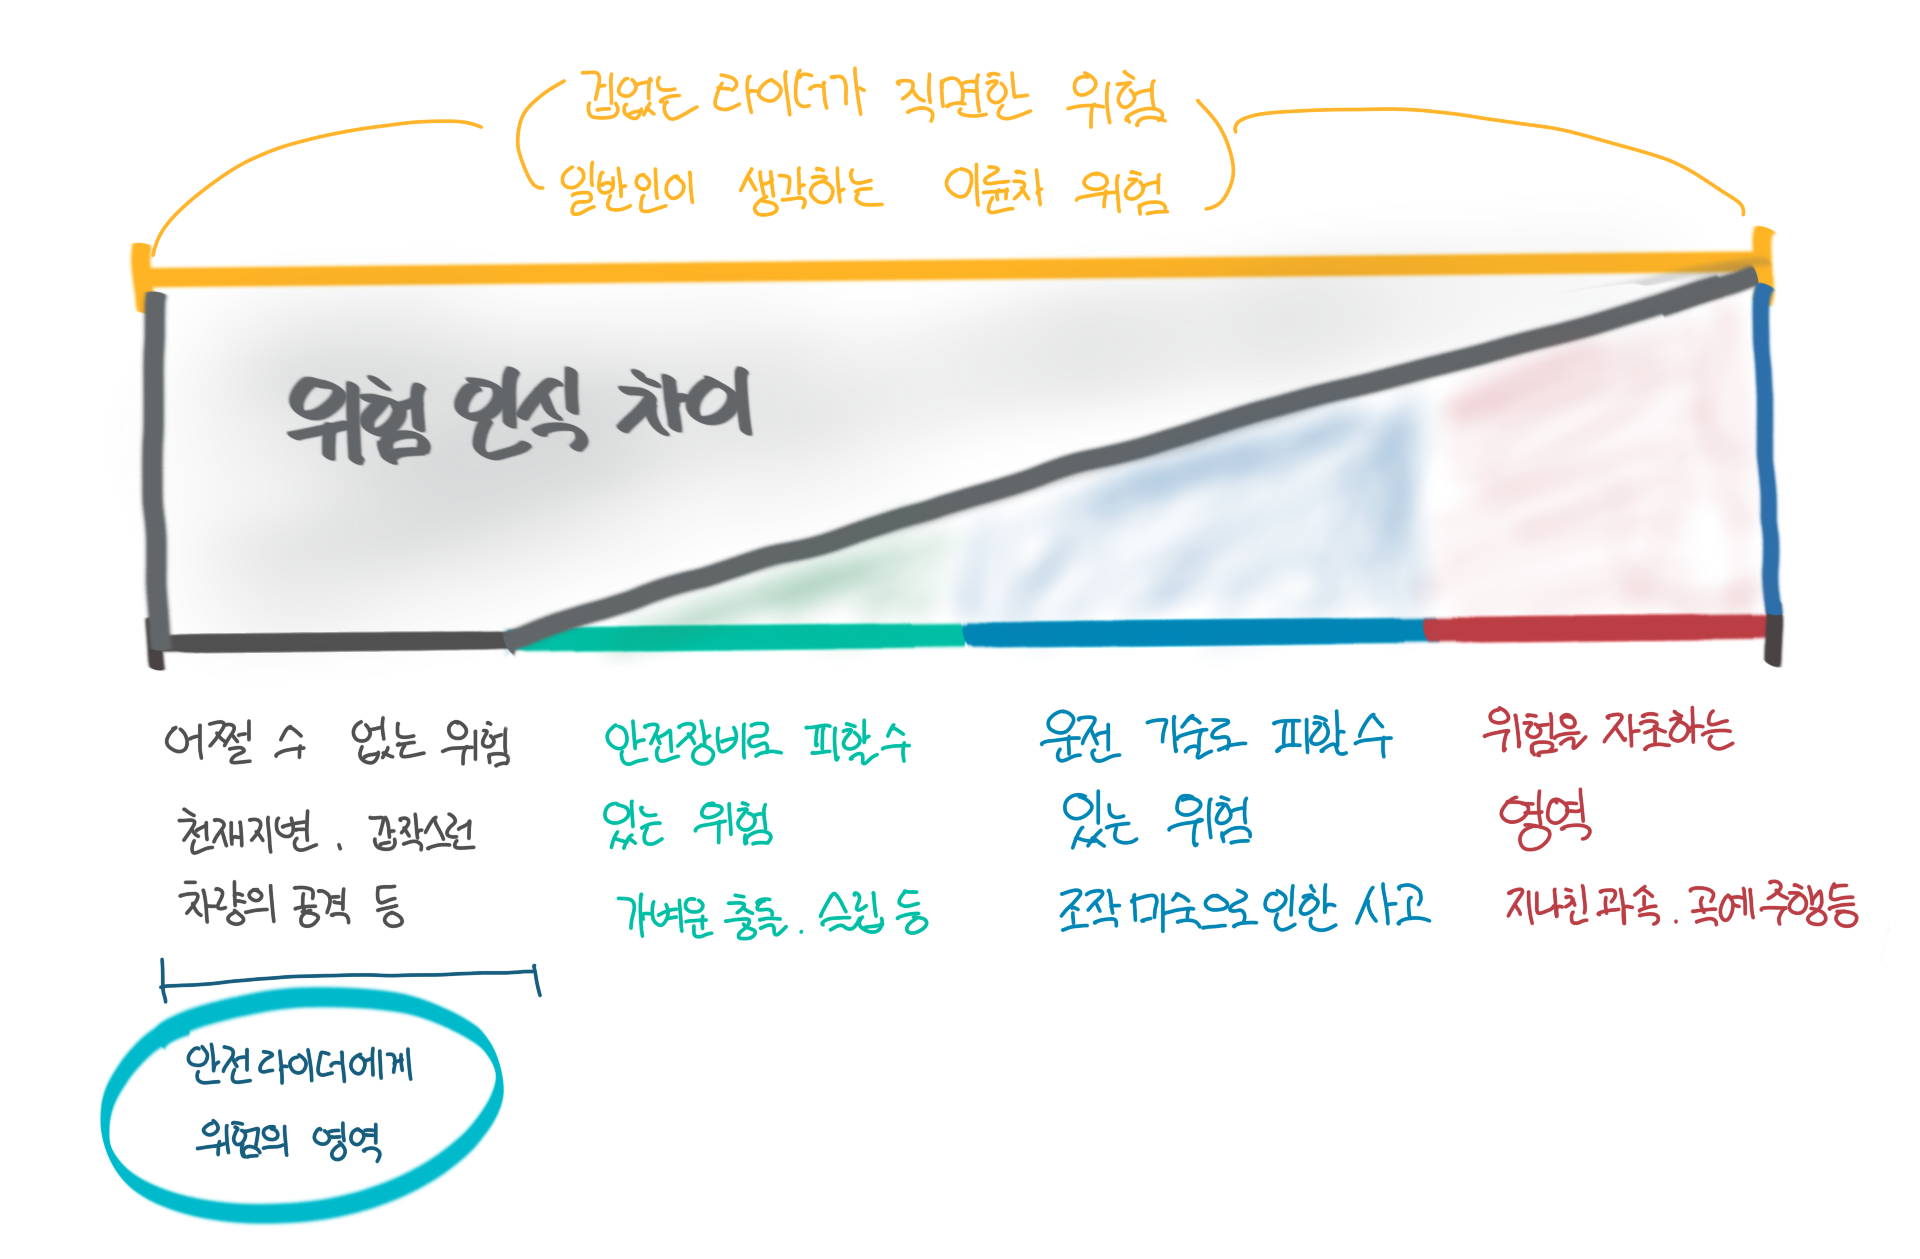 겁없는 라이더가 직면한 위험
일반인이 생각하는 이륜차 위험
위험 인식 차이
어쩔 수 없는 위험
천재지변. 갑작스런
차량의 공격 등
안전장비로 피할 수
있는 위험
가벼운 충돌. 슬립 등
운전 기술로 피할 수
있는 위험
조작 미숙으로 인한 사고
위험을 자초하는
영역
지나친 과속. 곡예 주행 등
안전라이더에게
위험의 영역